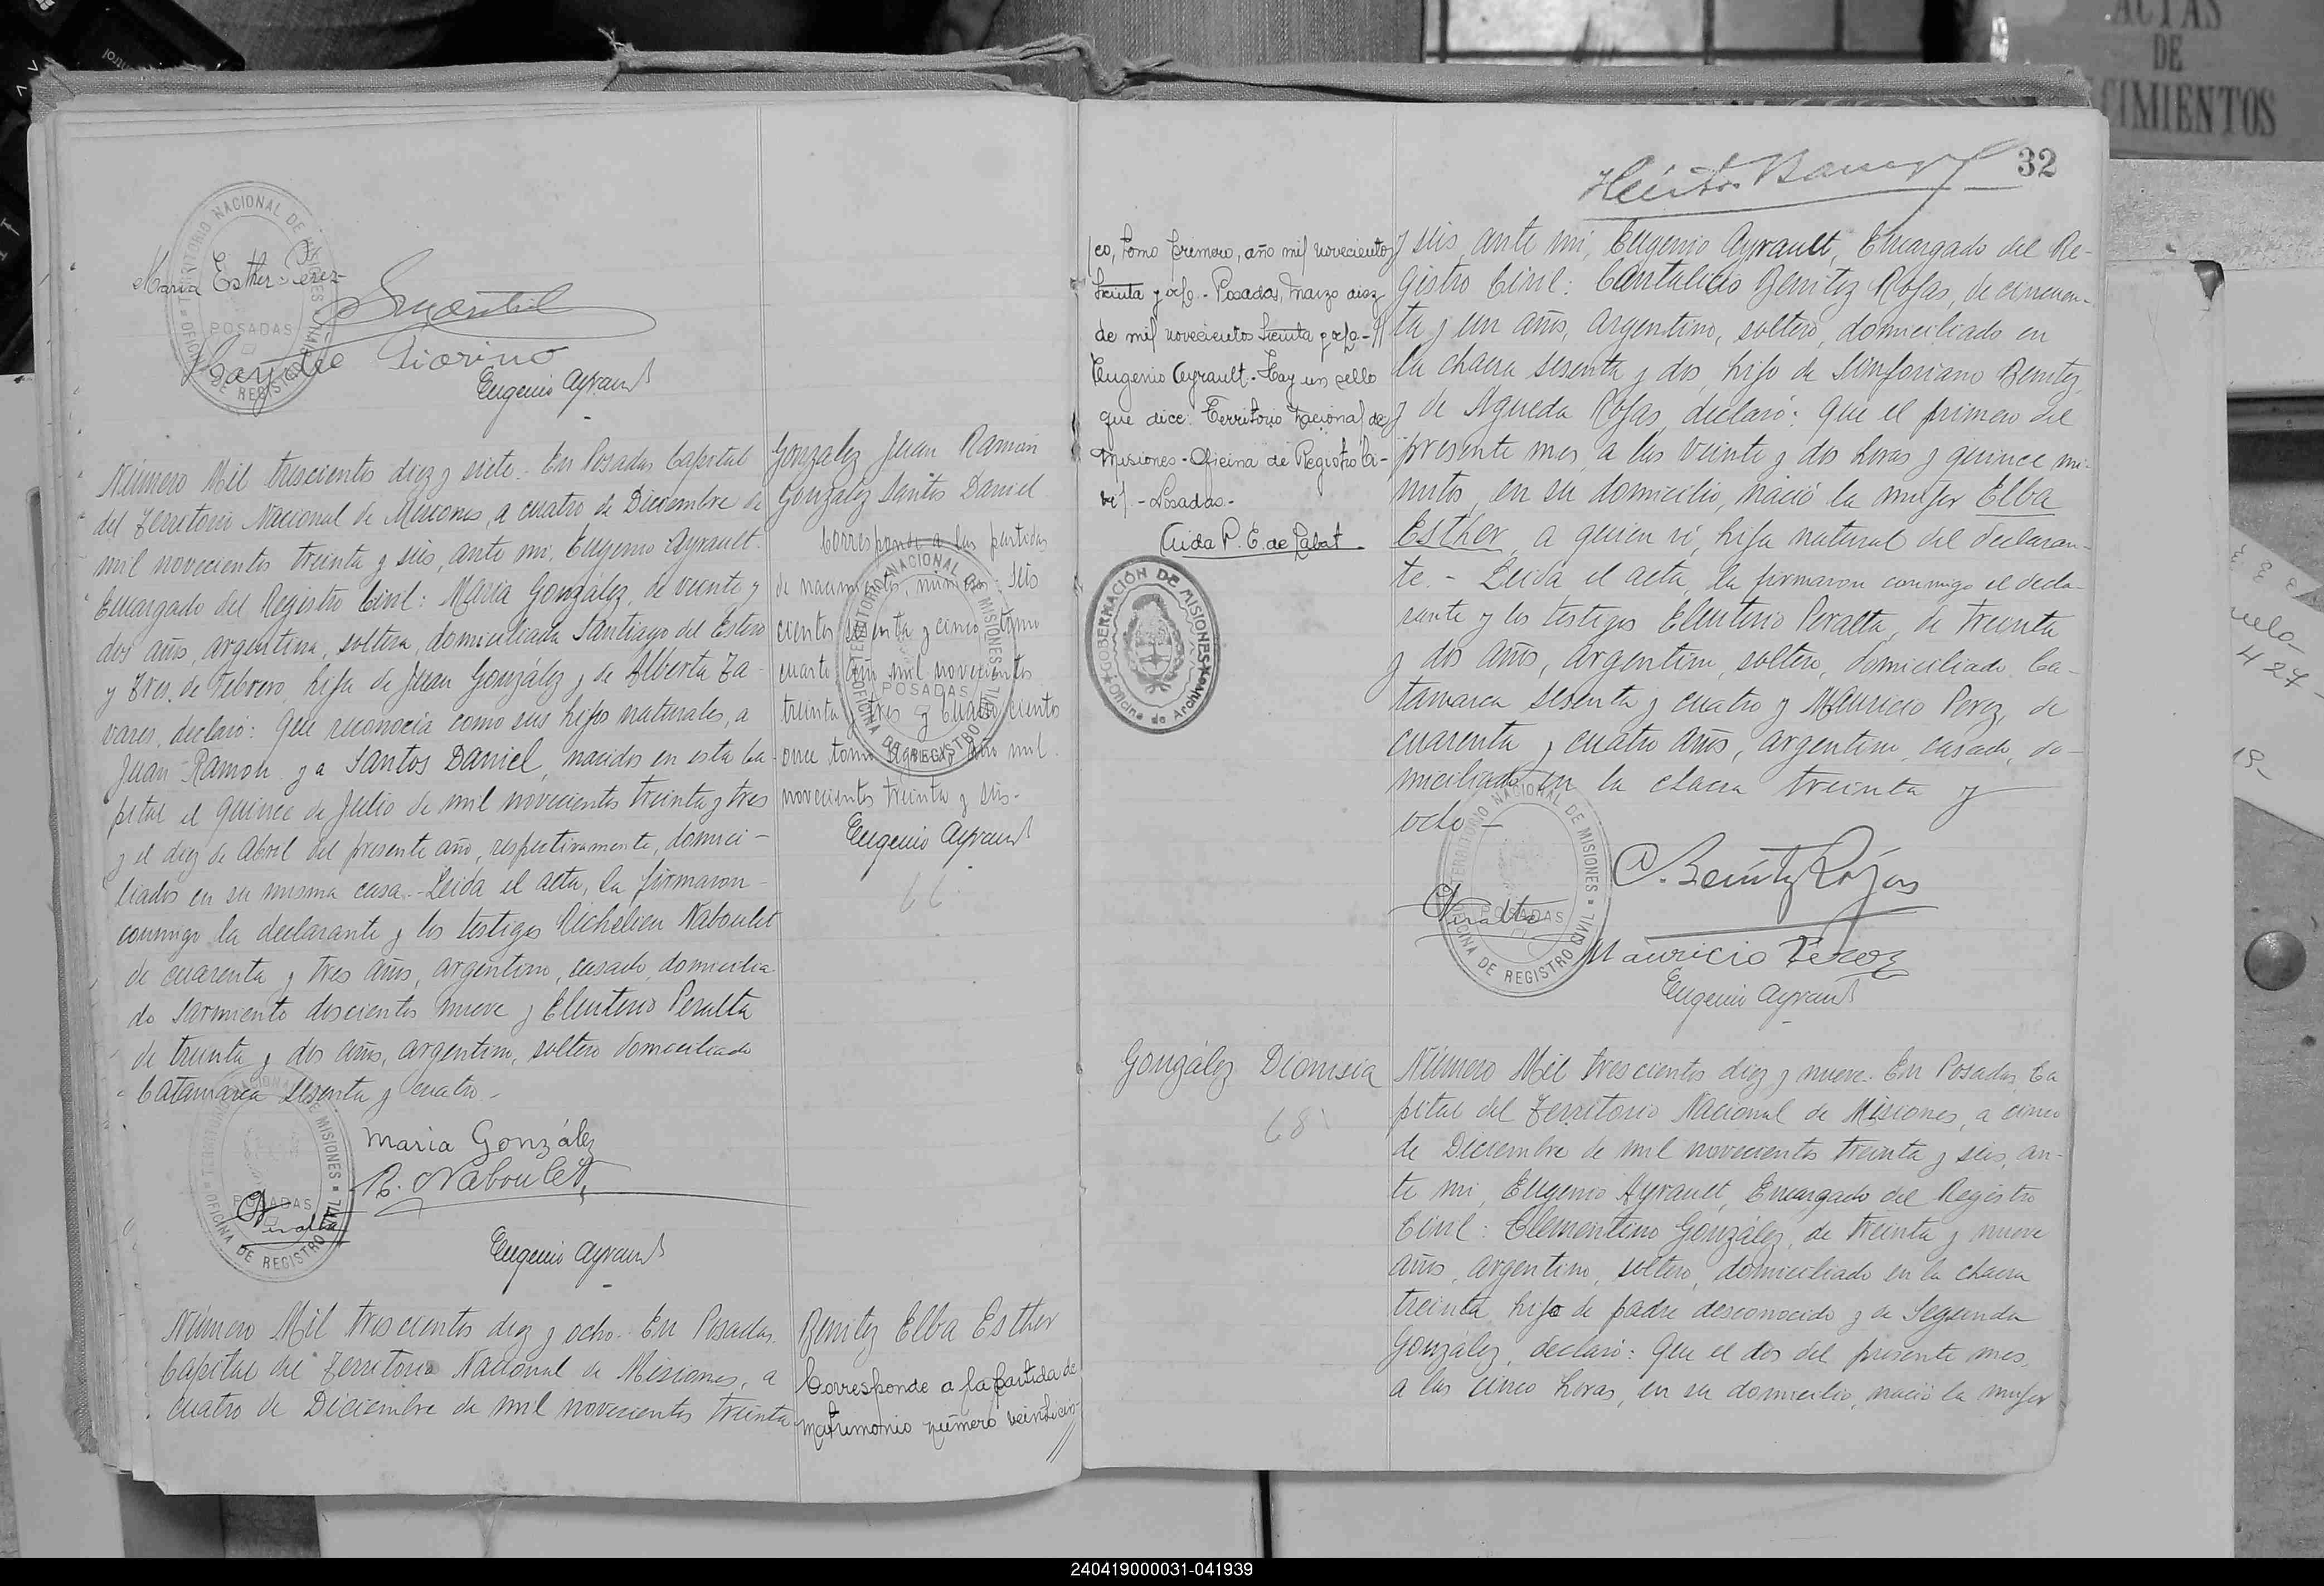 ACTAS
DE
CIMIENTOS
Maria Esther Perez
Eugenio Ayrault
Número Mil trescientos diez y siete. En Posadas Capital
del Territorio Nacional de Misiones, a cuatro de Diciembre de
mil novecientos treinta y seis, ante mi, Eugenio Ayrault.
Encargado del Registro Civil: María González, de veinte y
dos años, argentina, soltera, domiciliada Santiago del Estero
y Tres de Febrero, hija de Juan González y de Alberta Ta-
vares, declaró: Que reconocía como sus hijos naturales, a
Juan Ramon y a Santos Daniel, nacidos en esta Ca-
pital el quince de Julio de mil novecientos treinta y tres
y el diez de Abril del presente año, respectivamente, domici-
liados en su misma casa.- Leida el acta, la firmaron
conmigo la declarante y los testigos Richelieu Naboulet
de cuarenta y tres años, argentino, casado, domicilia
do Sarmiento doscientos nueve y Eleuterio Peralta
de treinta y dos años, argentino, soltero domiciliado
Catamarca sesenta y cuatro.-
Maria González
R. Naboulet
Peralta
Eugenio Ayrault
González Juan Ramon
González Santos Daniel
Corresponde a las partidas
de nacimientos, números: seis
cientos setenta y cinco tomo
cuarto año mil novecientos
treinta y tres y cuatrocientos
once tomo año mil
novecientos treinta y seis.
Eugenio Ayrault
66
Número Mil trescientos diez y ocho. En Posadas
Capital del Territorio Nacional de Misiones, a
cuatro de Diciembre de mil novecientos treinta
Benitez Elba Esther
Corresponde a la partida de
matrimonio número veinticin-
TERRITORIO NACIONAL DE MISIONES
POSADAS
OFICINA DE REGISTRO CIVIL
32
co, tomo primero, año mil novecientos
treinta y ocho.- Posadas, Marzo diez
de mil novecientos treinta y ocho-
Eugenio Ayrault.- Hay un sello
que dice: Territorio Nacional de
Misiones - Oficina de Registro Ci-
vil.- Posadas.-
Aida P. E. de Labat
GOBERNACIÓN DE MISIONES
Oficina de Archivo
y seis, ante mi, Eugenio Ayrault, Encargado del Re-
gistro Civil: Cantalicio Benitez Rojas, de cincuen-
ta y un años, argentino, soltero, domiciliado en
la chacra sesenta y dos, hijo de Sinforiano Benitez
y de Agueda Rojas, declaró: Que el primero del
presente mes, a las veinte y dos horas y quince mi-
nutos, en su domicilio, nació la mujer Elba
Esther, a quien ví, hija natural del declaran-
te.- Leida el acta, la firmaron conmigo el decla-
rante y los testigos Eleuterio Peralta, de treinta
y dos años, argentino, soltero, domiciliado Ca-
tamarca sesenta y cuatro y Mauricio Perez, de
cuarenta y cuatro años, argentino, casado, do-
miciliado en la chacra treinta y
ocho -
C. Benítez Rojas
Peralta
Mauricio Perez
Eugenio Ayrault
González Dionisia
68
Número Mil trescientos diez y nueve. En Posadas, Ca
pital del Territorio Nacional de Misiones, a cinco
de Diciembre de mil novecientos treinta y seis, an-
te mi, Eugenio Ayrault, Encargado del Registro
Civil: Clementino González, de treinta y nueve
años, argentino, soltero, domiciliado en la chacra
treinta, hijo de padre desconocido y de Segunda
González, declaró: Que el dos del presente mes,
a las cinco horas, en su domicilio, nació la mujer
240419000031-041939